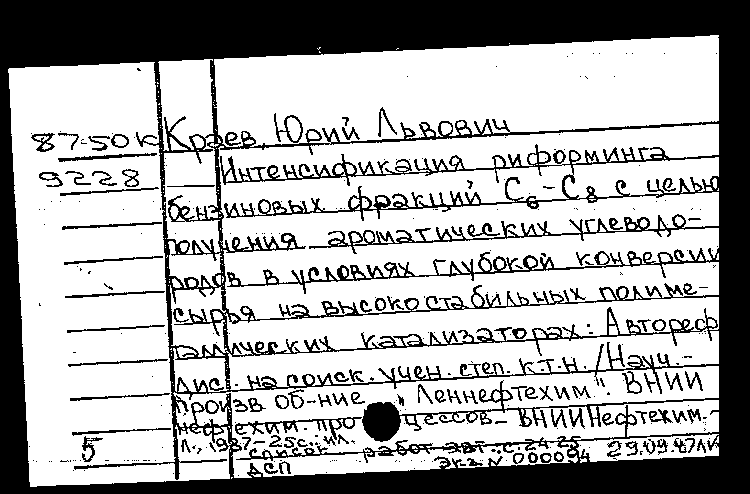 87-50к Краев, Юрий Львович
9228 Интенсификация риформинга
бензиновых фракций С6-С8 с целью
получения ароматических углеводо-
родов в условиях глубокой конверсии
сырья на высокостабильных полиме-
таллических катализаторах: Автореф
дис. на соиск. учен. степ. к.т.н. /Науч.-
произв об-ние "Леннефтехим". ВНИИ
нефтехим. процессов- ВНИИНефтехим.-
Л., 1987-25с.: ил.
5 список работ авт.: с. 24-25 29.09.87
ДСП Экз. N 000094